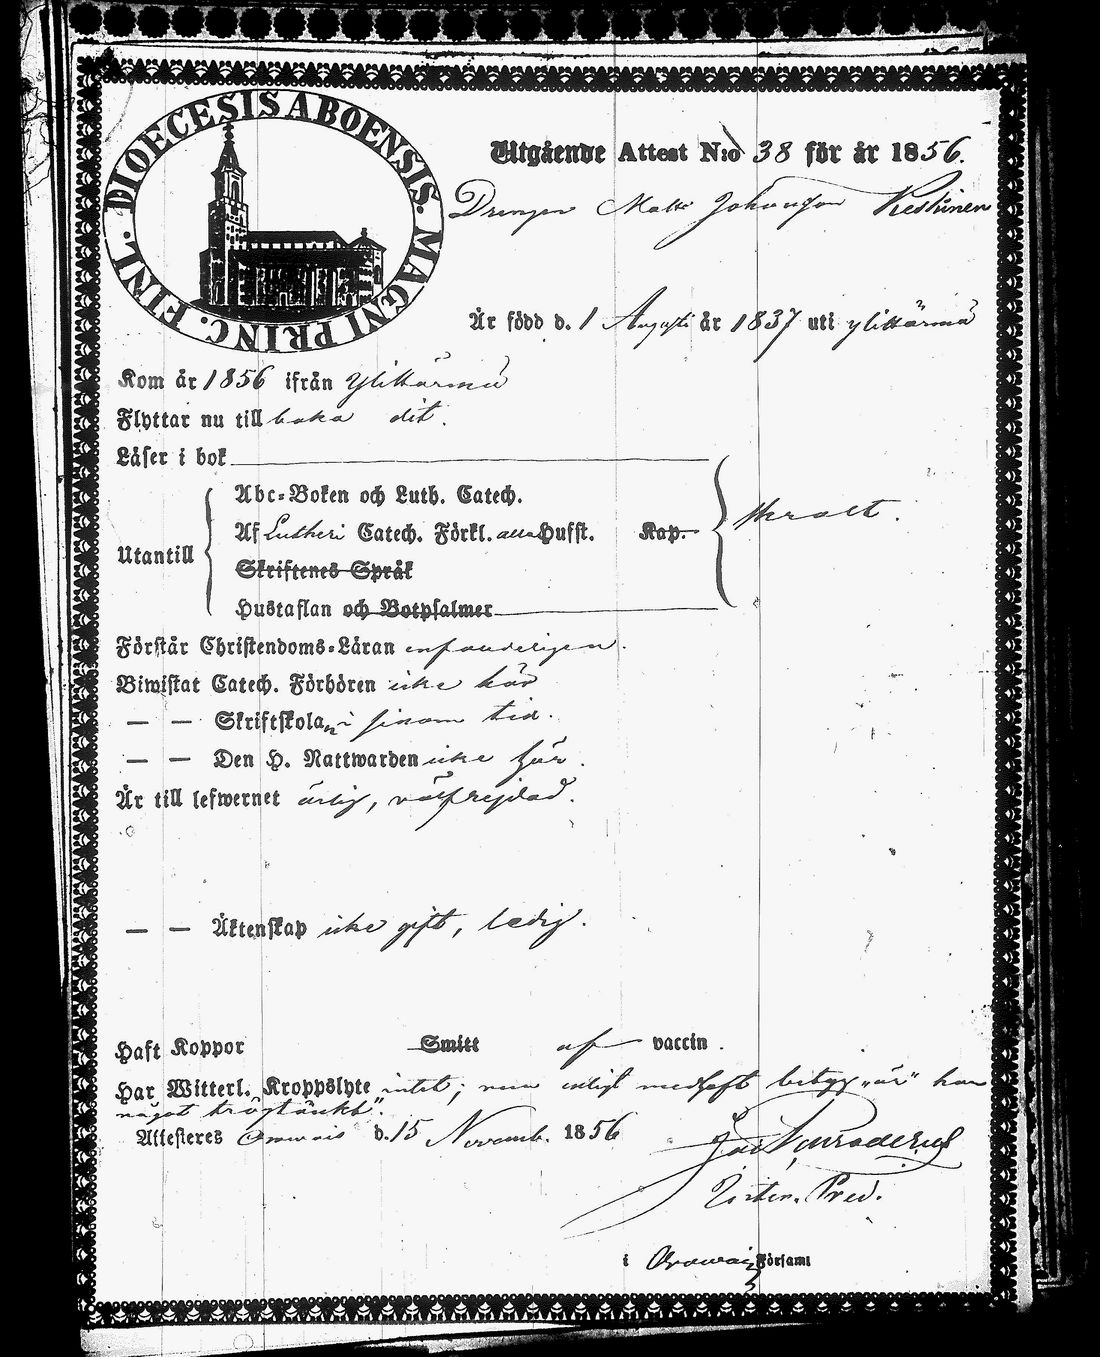 DIOECESIS ABOENSIS. MAGNI PRINC. FINL.
Utgående Attest N:o 38 för år 1856.
Drengen Matts Johansson Keskinen
Är född d. 1 Augusti år 1837 uti Ylikärmä
Kom år 1856 ifrån Ylikärmä
Flyttar nu till baka dit.
Läser i bok
Abc-Boken och Luth. Catech.
Utantill Af Lutheri Catech. Förkl. alla Husst. Kap. svalt.
Skriftenes Språk
Hustaflan och Botpsalmer
Förstår Christendoms-Läran enfaldeligen.
Biwistat Catech. Förhören icke här
— — Skriftskolan i sinom tid.
— — Den H. Nattwarden icke här.
Är till lefwernet ärlig, välfrejdad.
— — Äktenskap icke gift, ledig.
Haft Koppor Smitt af vaccin.
Har Witterl. Kroppslyte intet; men enligt medhaft betyg "är" han
något trögtänkt".
Attesteres Orawais d. 15 Novemb. 1856
Pred.
i Orawais Församl